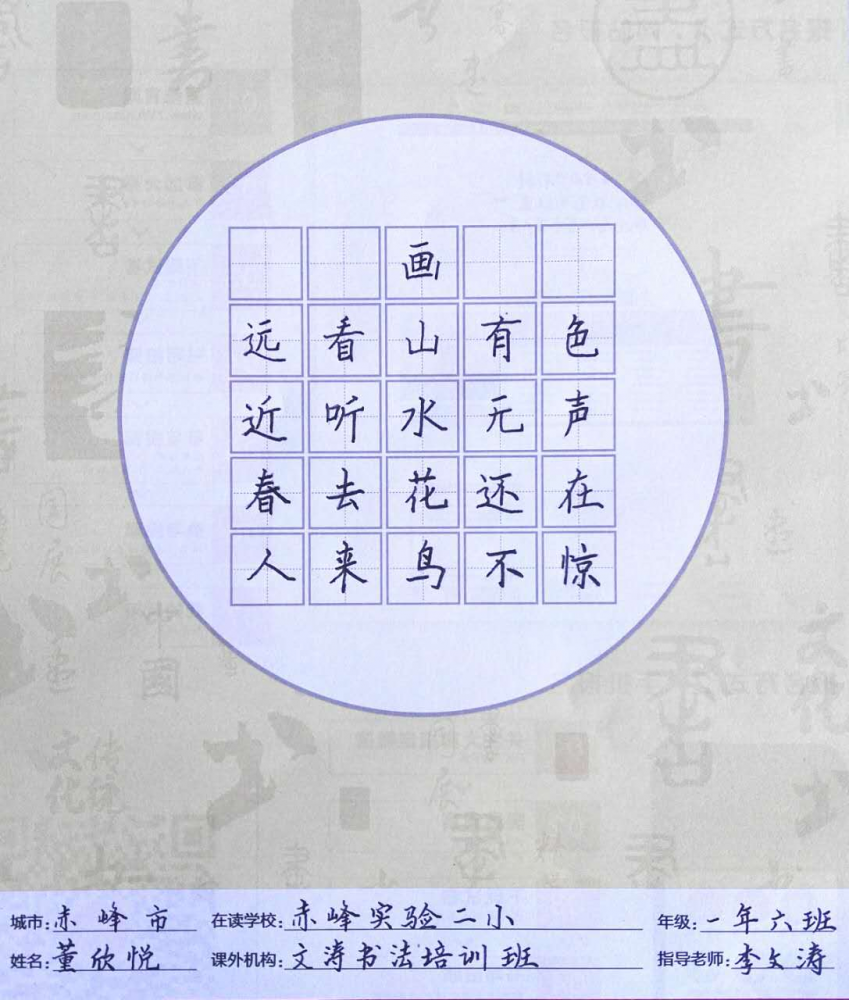 画
远看山有色
近听水无声
春去花还在
人来鸟不惊
城市:赤峰市 在读学校:赤峰实验二小 年级:一年六班
姓名:董欣悦 课外机构:文涛书法培训班 指导老师:李文涛